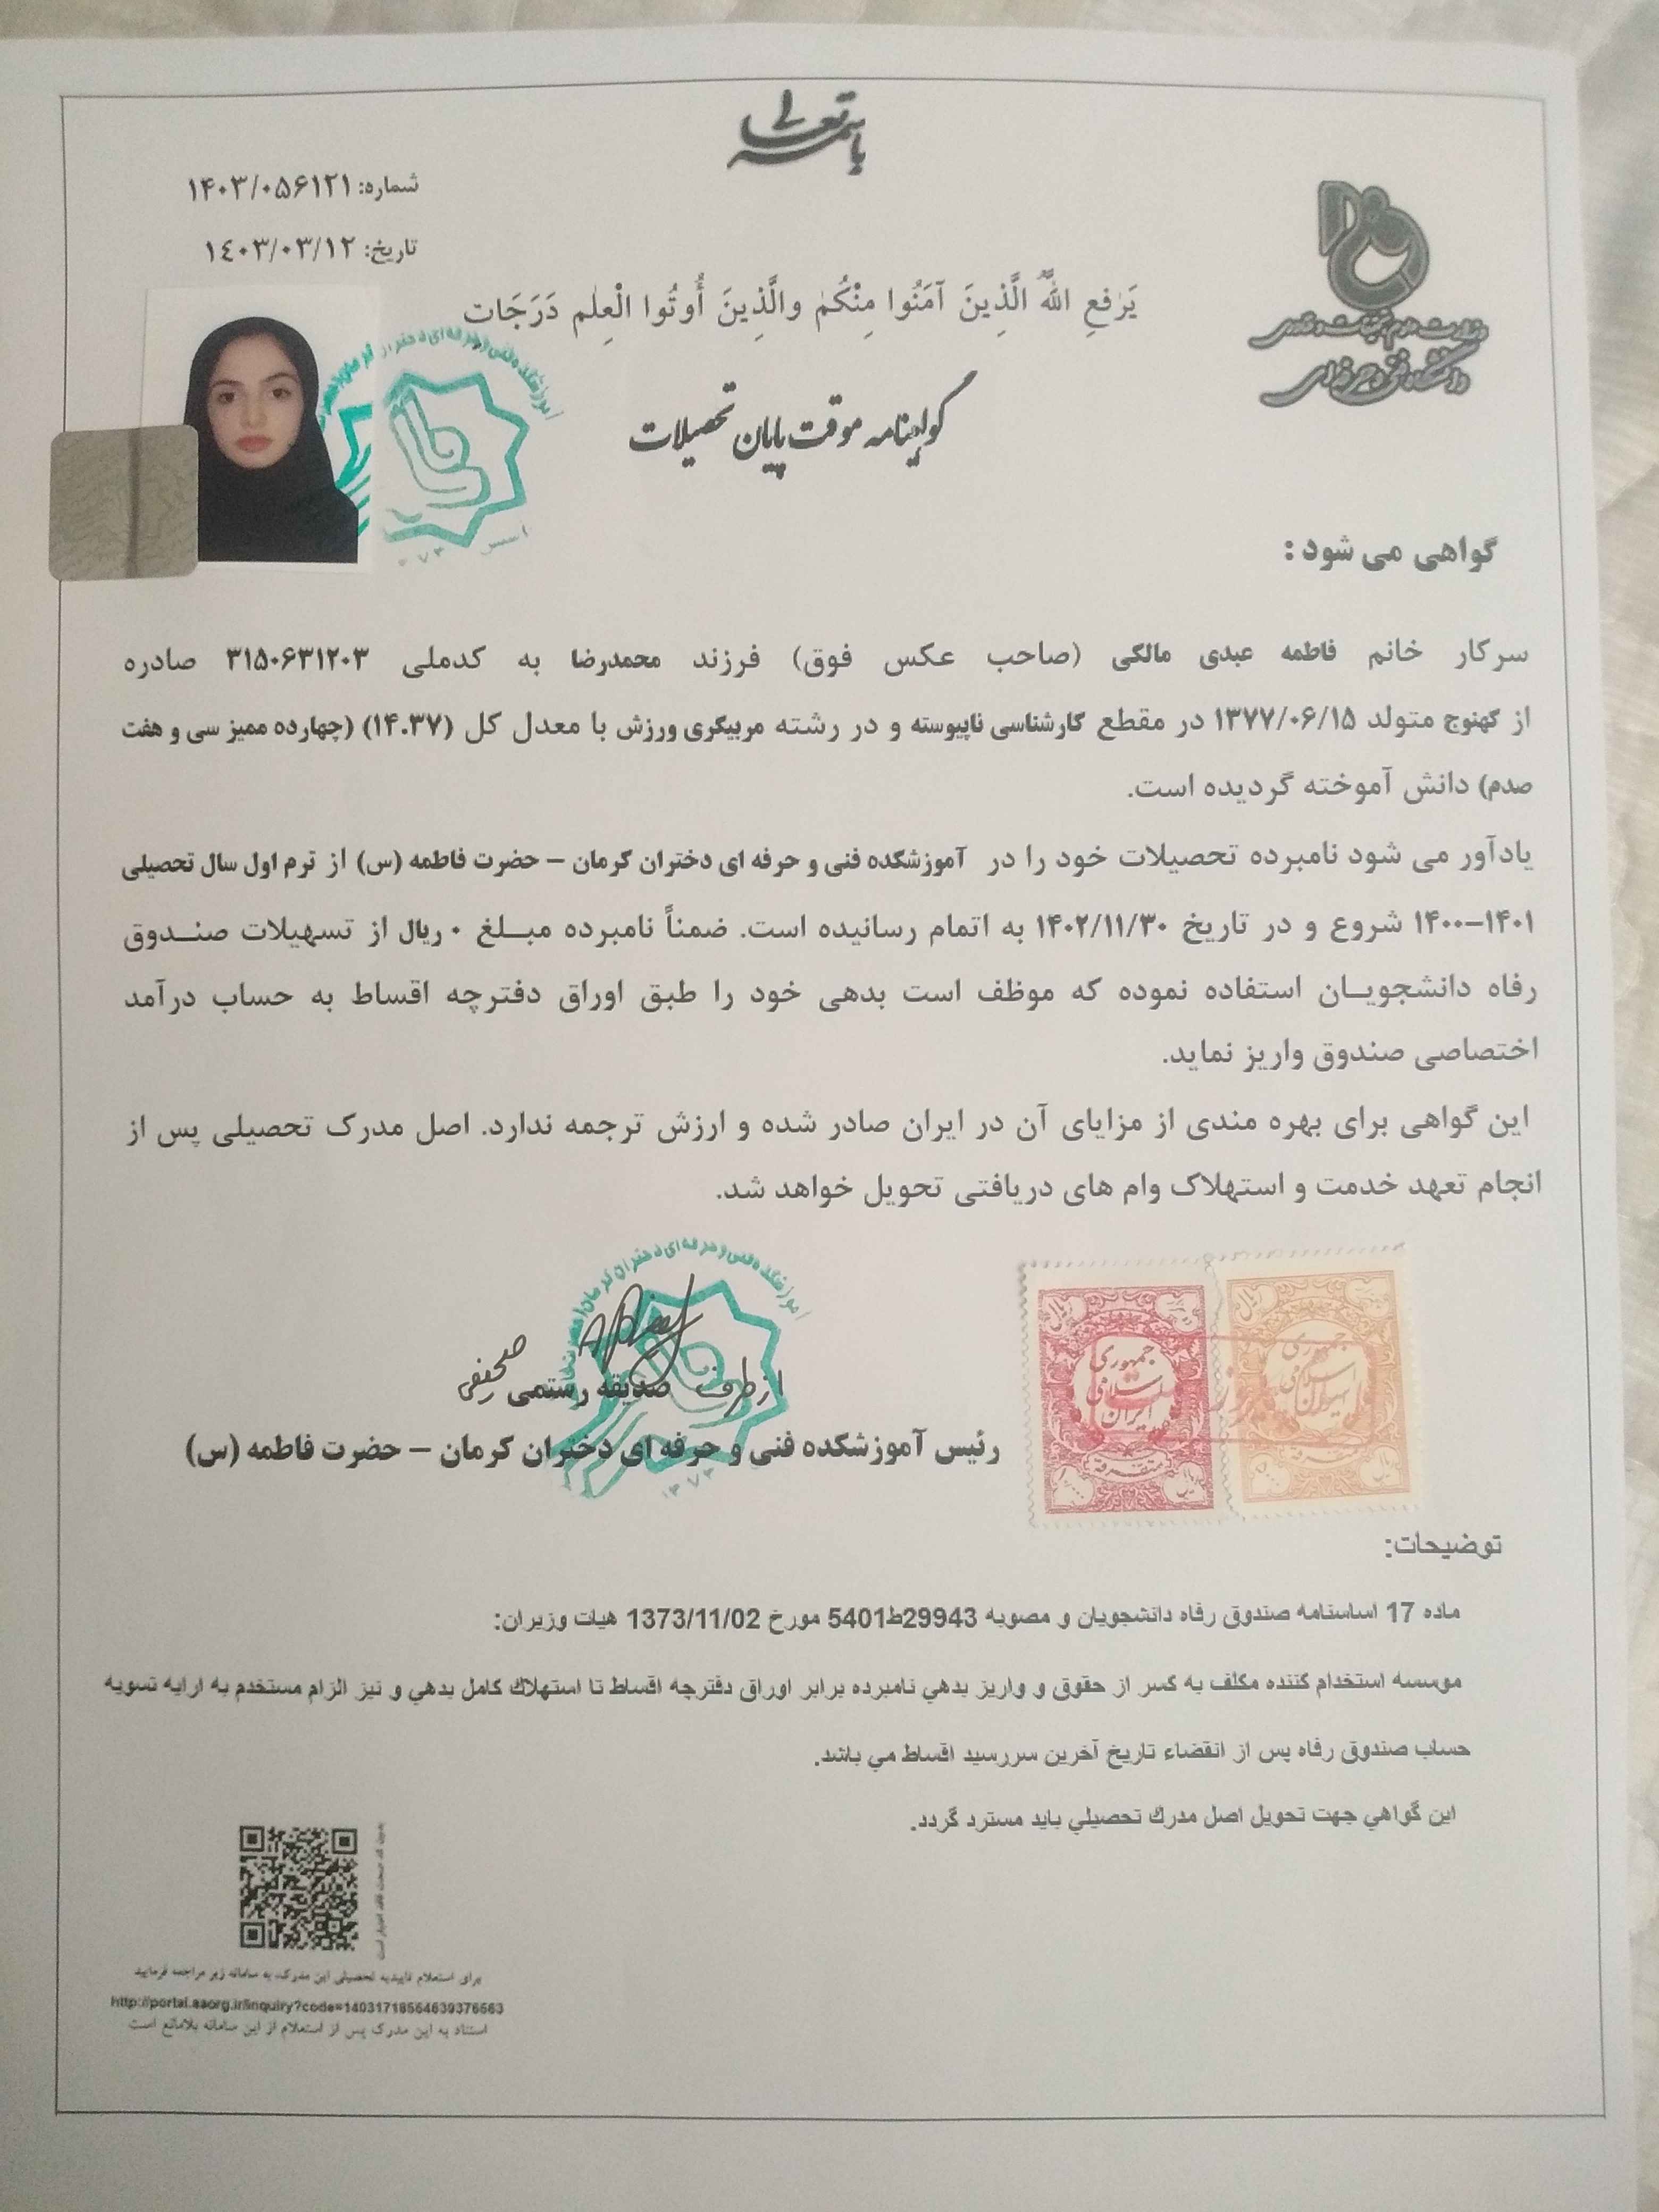 باسمه تعالی
شماره: ۱۴۰۳/۰۵۶۱۲۱
تاریخ: ۱٤۰۳/۰۳/۱۲
وزارت علوم، تحقیقات و فناوری
دانشگاه فنی و حرفه‌ای
یَرفَعِ اللهُ الَّذِینَ آمَنُوا مِنْکُم والَّذِینَ أُوتُوا الْعِلم دَرَجَات
گواهینامه موقت پایان تحصیلات
گواهی می شود :
سرکار خانم فاطمه عبدی مالکی (صاحب عکس فوق) فرزند محمدرضا به کدملی ۳۱۵۰۶۳۱۲۰۳ صادره
از کهنوج متولد ۱۳۷۷/۰۶/۱۵ در مقطع کارشناسی ناپیوسته و در رشته مربیگری ورزش با معدل کل (۱۴.۳۷) (چهارده ممیز سی و هفت
صدم) دانش آموخته گردیده است.
یادآور می شود نامبرده تحصیلات خود را در آموزشکده فنی و حرفه ای دختران کرمان – حضرت فاطمه (س) از ترم اول سال تحصیلی
۱۴۰۰-۱۴۰۱ شروع و در تاریخ ۱۴۰۲/۱۱/۳۰ به اتمام رسانیده است. ضمناً نامبرده مبلغ ۰ ریال از تسهیلات صندوق
رفاه دانشجویان استفاده نموده که موظف است بدهی خود را طبق اوراق دفترچه اقساط به حساب درآمد
اختصاصی صندوق واریز نماید.
این گواهی برای بهره مندی از مزایای آن در ایران صادر شده و ارزش ترجمه ندارد. اصل مدرک تحصیلی پس از
انجام تعهد خدمت و استهلاک وام های دریافتی تحویل خواهد شد.
آموزشکده فنی و حرفه ای دختران کرمان
از طرف صدیقه رستمی
رئیس آموزشکده فنی و حرفه ای دختران کرمان – حضرت فاطمه (س)
ریال ریال
جمهوری اسلامی ایران جمهوری اسلامی ایران
متفرقه متفرقه
توضیحات:
ماده 17 اساسنامه صندوق رفاه دانشجویان و مصوبه 29943ط5401 مورخ 1373/11/02 هیات وزیران:
موسسه استخدام کننده مکلف به کسر از حقوق و واریز بدهي نامبرده برابر اوراق دفترچه اقساط تا استهلاك کامل بدهي و نیز الزام مستخدم به ارایه تسویه
حساب صندوق رفاه پس از انقضاء تاریخ آخرین سررسید اقساط مي باشد.
این گواهي جهت تحویل اصل مدرك تحصیلي باید مسترد گردد.
برای استعلام تاییدیه تحصیلی این مدرک، به سامانه زیر مراجعه فرمایید
http://portal.saorg.ir/inquiry?code=14031718564639376563
استناد به این مدرک پس از استعلام از این سامانه بلامانع است